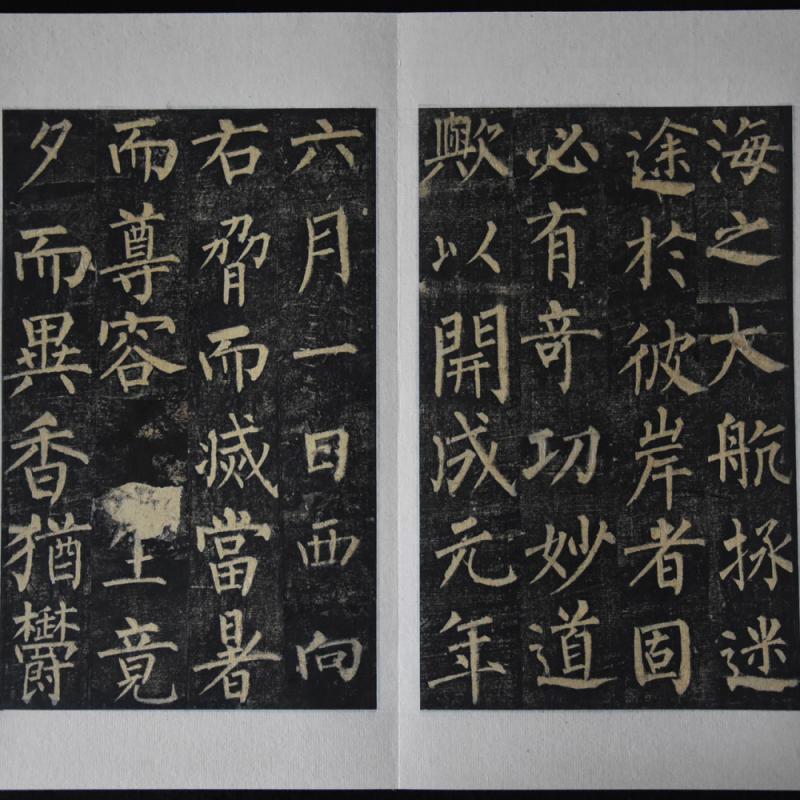 海之大航拯迷
途於彼岸者固
必有奇功妙道
歟以開成元年
六月一日西向
右脅而滅當暑
而尊容生竟
夕而異香猶欝